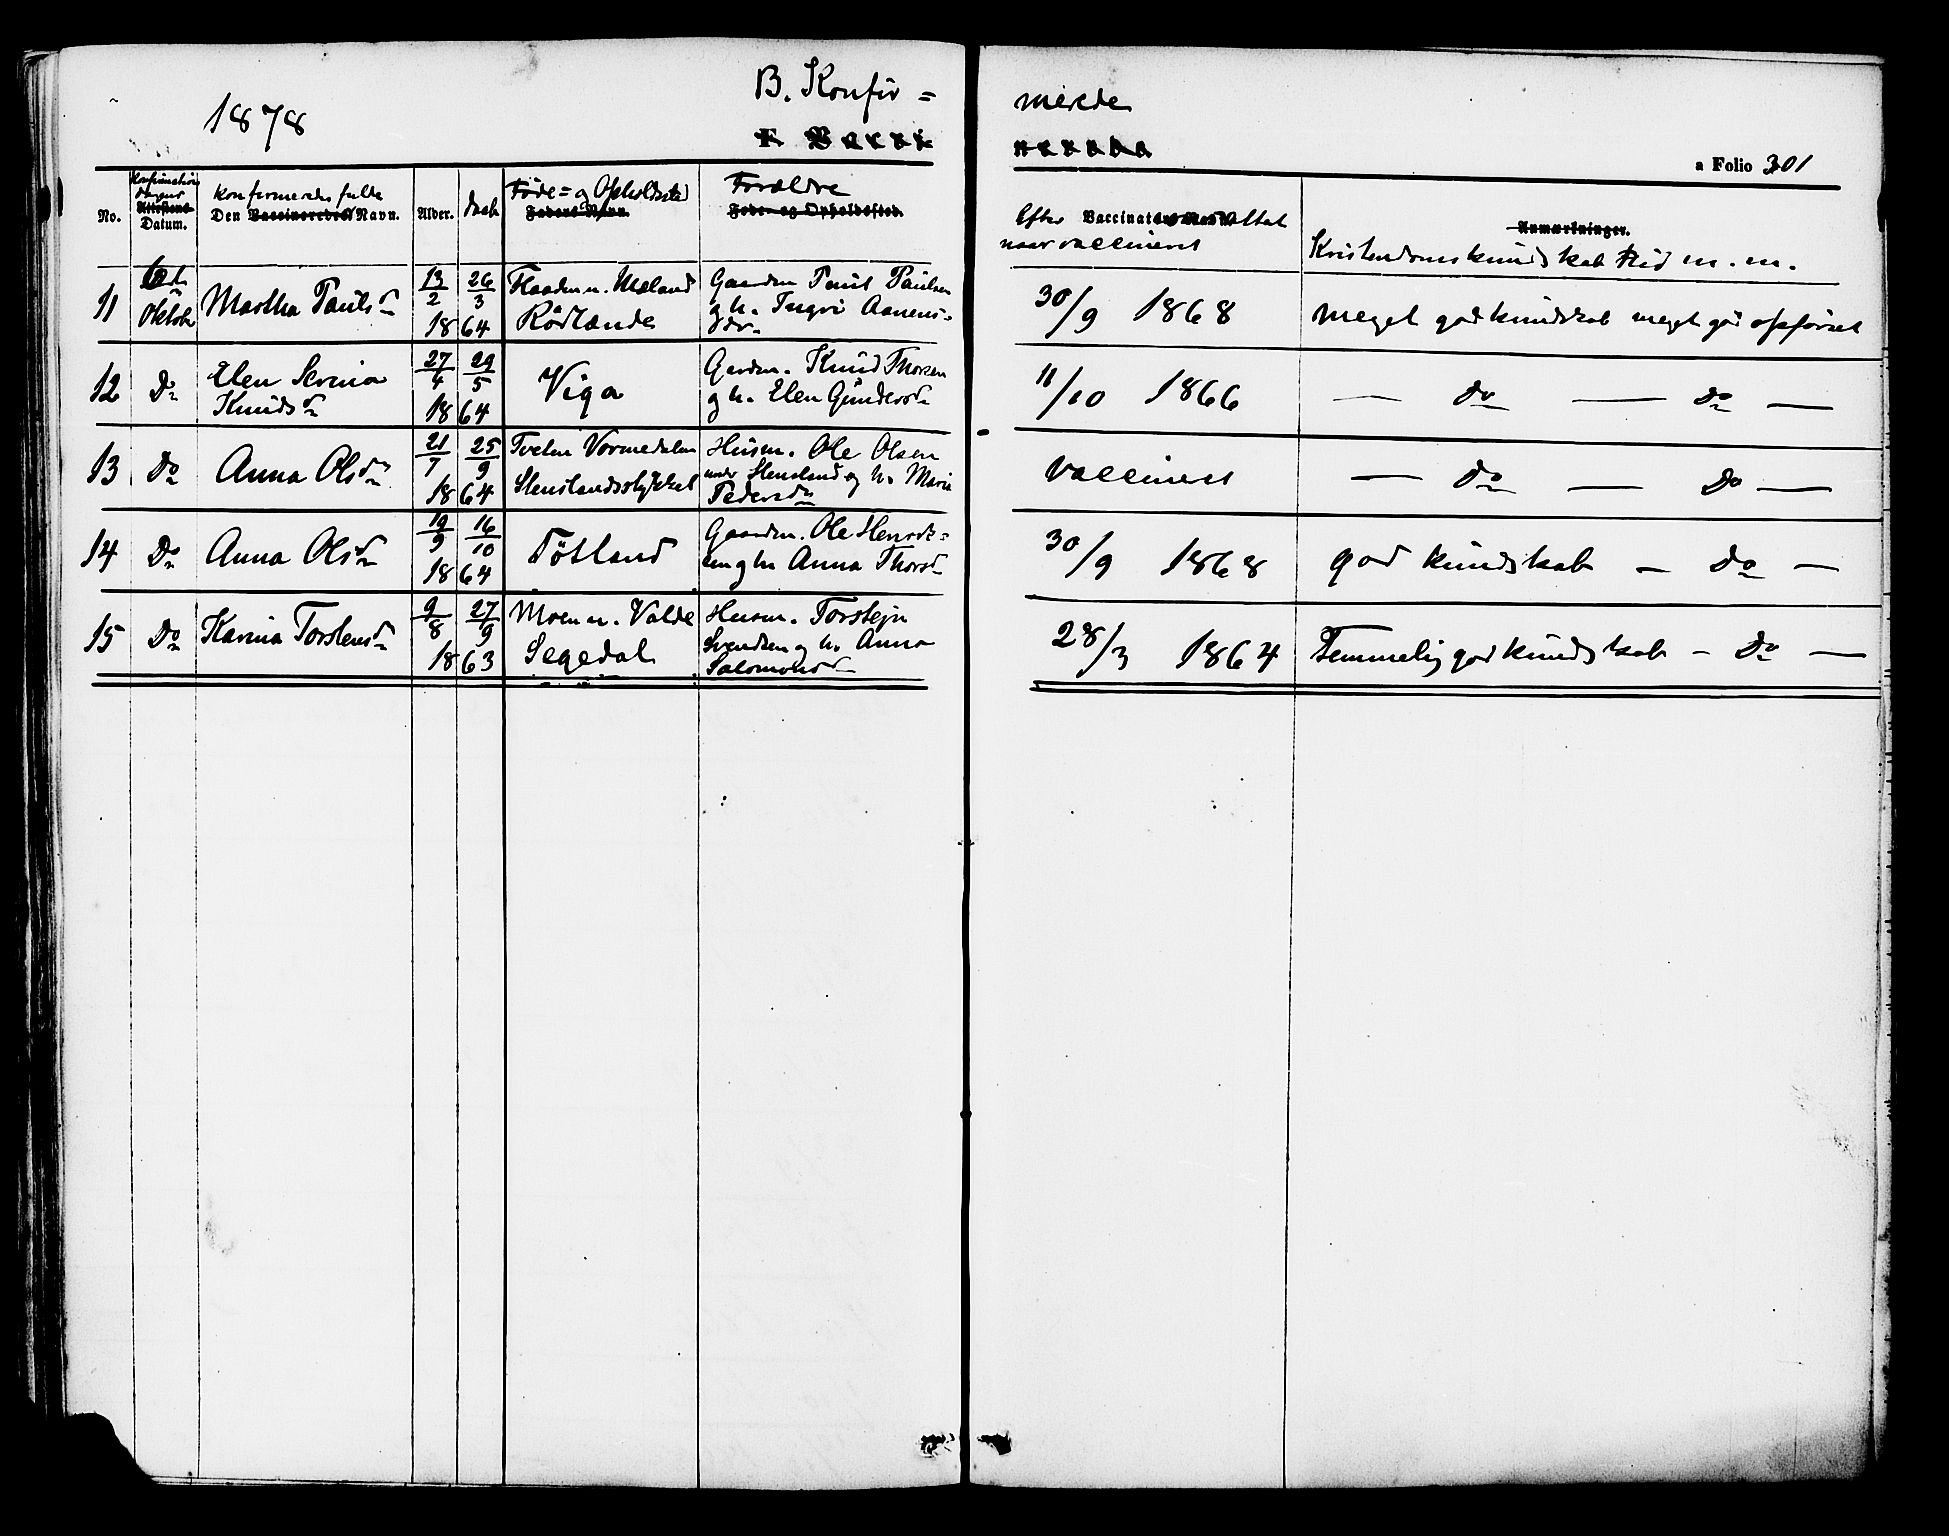 1878
B. Konfir =
merede
F. Vacci
nerede
a Folio 301
No.
Konfirmations
dagens
Attestens
Datum.
konfirmeredes fulde
Den Vaccineredes Navn.
Alder.
daab
Føde = og Opholdssted
Fadens Navn.
Forældre
Føde- og Opholdssted.
Efter Vaccinat attest
naar vaccineret
Anmærkninger.
Kristendomskundskab Flid m. m.
11
Oktober
Martha Pauls d.
13/2 26/3
1864
n. Mæland
Rödlande
Gaardm Paul Paulsen
og h. Ingri Aanens=
dtr
30/9 1868
meget god kundskab meget god opførsel
12 Do
Elen Serina
Knuds d.
27/4 29/5
1864
Viga
Gaardm. Knud Thorsen
og h. Elen Gundersd.
11/10 1866
— Do — Do —
13 Do
Anna Olsd.
21/7 25/9
1864
Tveten Vormedalen
Stenslandsstykket
Husm. Ole Olsen
under Stensland og h. Marie
Pedersd.
Vaccineret
— Do — Do —
14 Do
Anna Olsd.
19/9 16/10
1864
Tøtland
Gaardm. Ole Henrik=
sen og h. Anna Thorsd.
30/9 1868
god kundskab — Do —
15 Do
Karina Torstensd.
9/8 27/9
1863
Moen n. Valde
Segedal
Husm. Torstejn
Svendsen og h. Anna
Salomonsd.
28/3 1864
Temmelig god kundskab - Do —